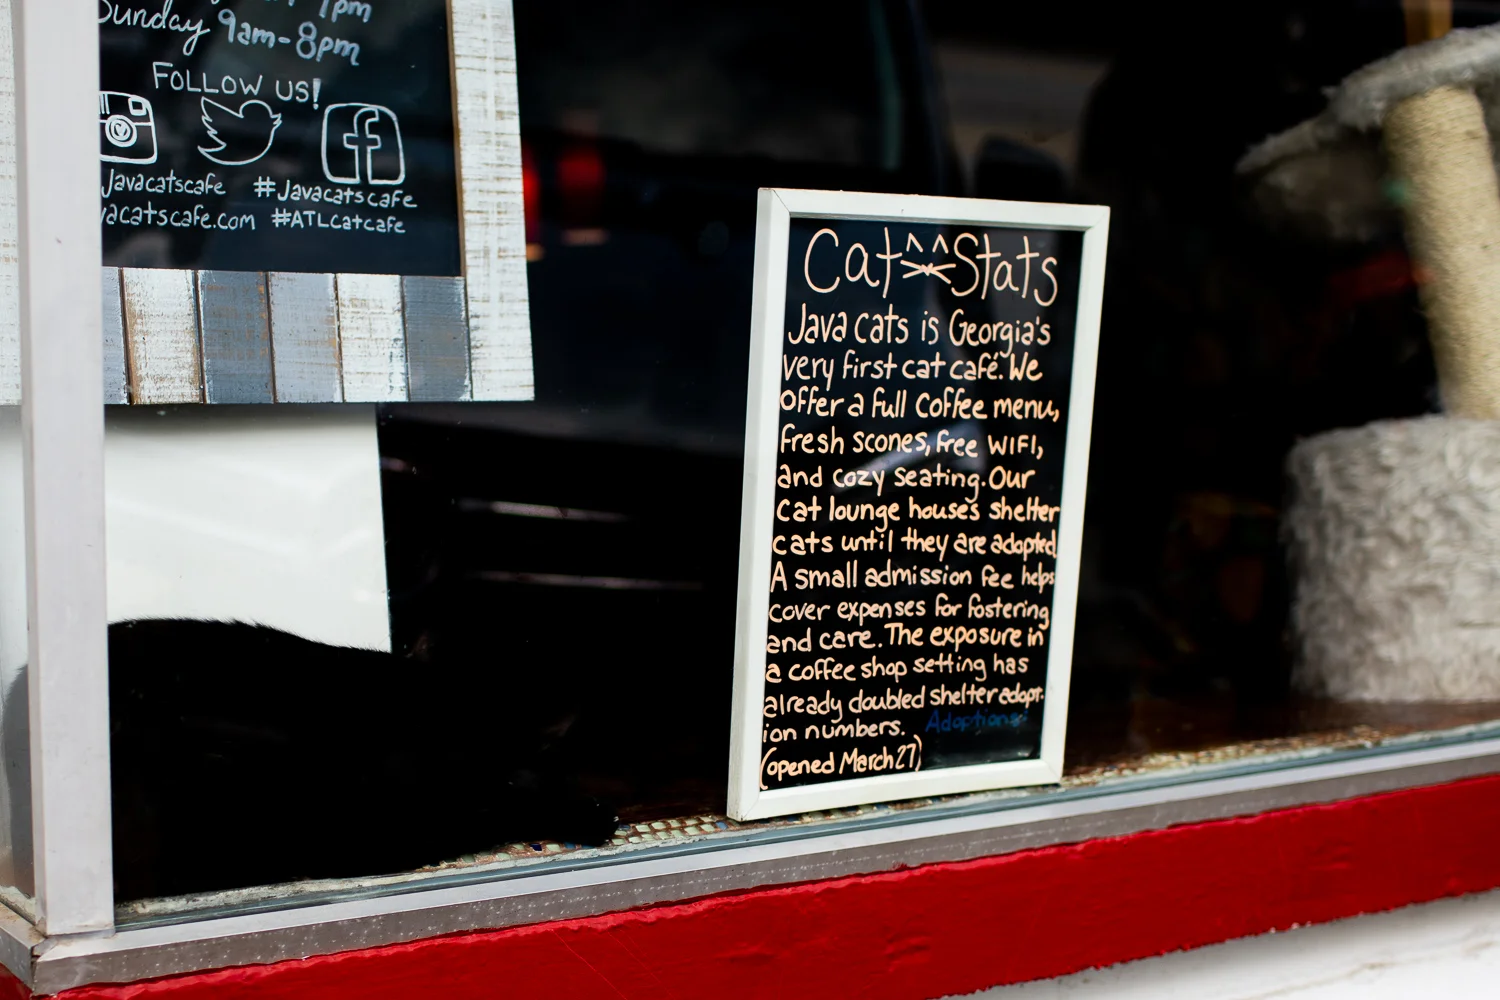 Sunday 9am-8pm
FOLLOW US!
Javacatscafe #Javacatscafe
vacatscafe.com #ATLCatcafe
Cat Stats
Java cats is Georgia's
very first cat café. We
offer a full coffee menu,
fresh scones, free WIFI,
and cozy seating. Our
cat lounge houses shelter
cats until they are adopted
A small admission fee helps
cover expenses for fostering
and care. The exposure in
a coffee shop setting has
already doubled shelter adopt-
ion numbers. Adoptions:
(opened March 27)